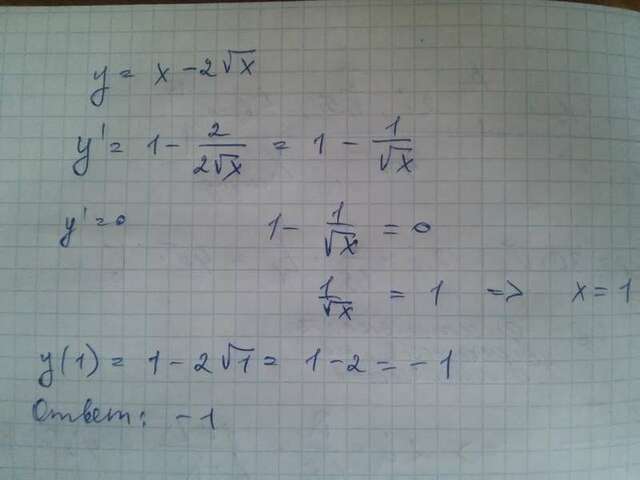 y = x - 2√x
y' = 1 - 2/(2√x) = 1 - 1/√x
y' = 0 1 - 1/√x = 0
1/√x = 1 => x = 1
y(1) = 1 - 2√1 = 1 - 2 = - 1
Ответ: - 1